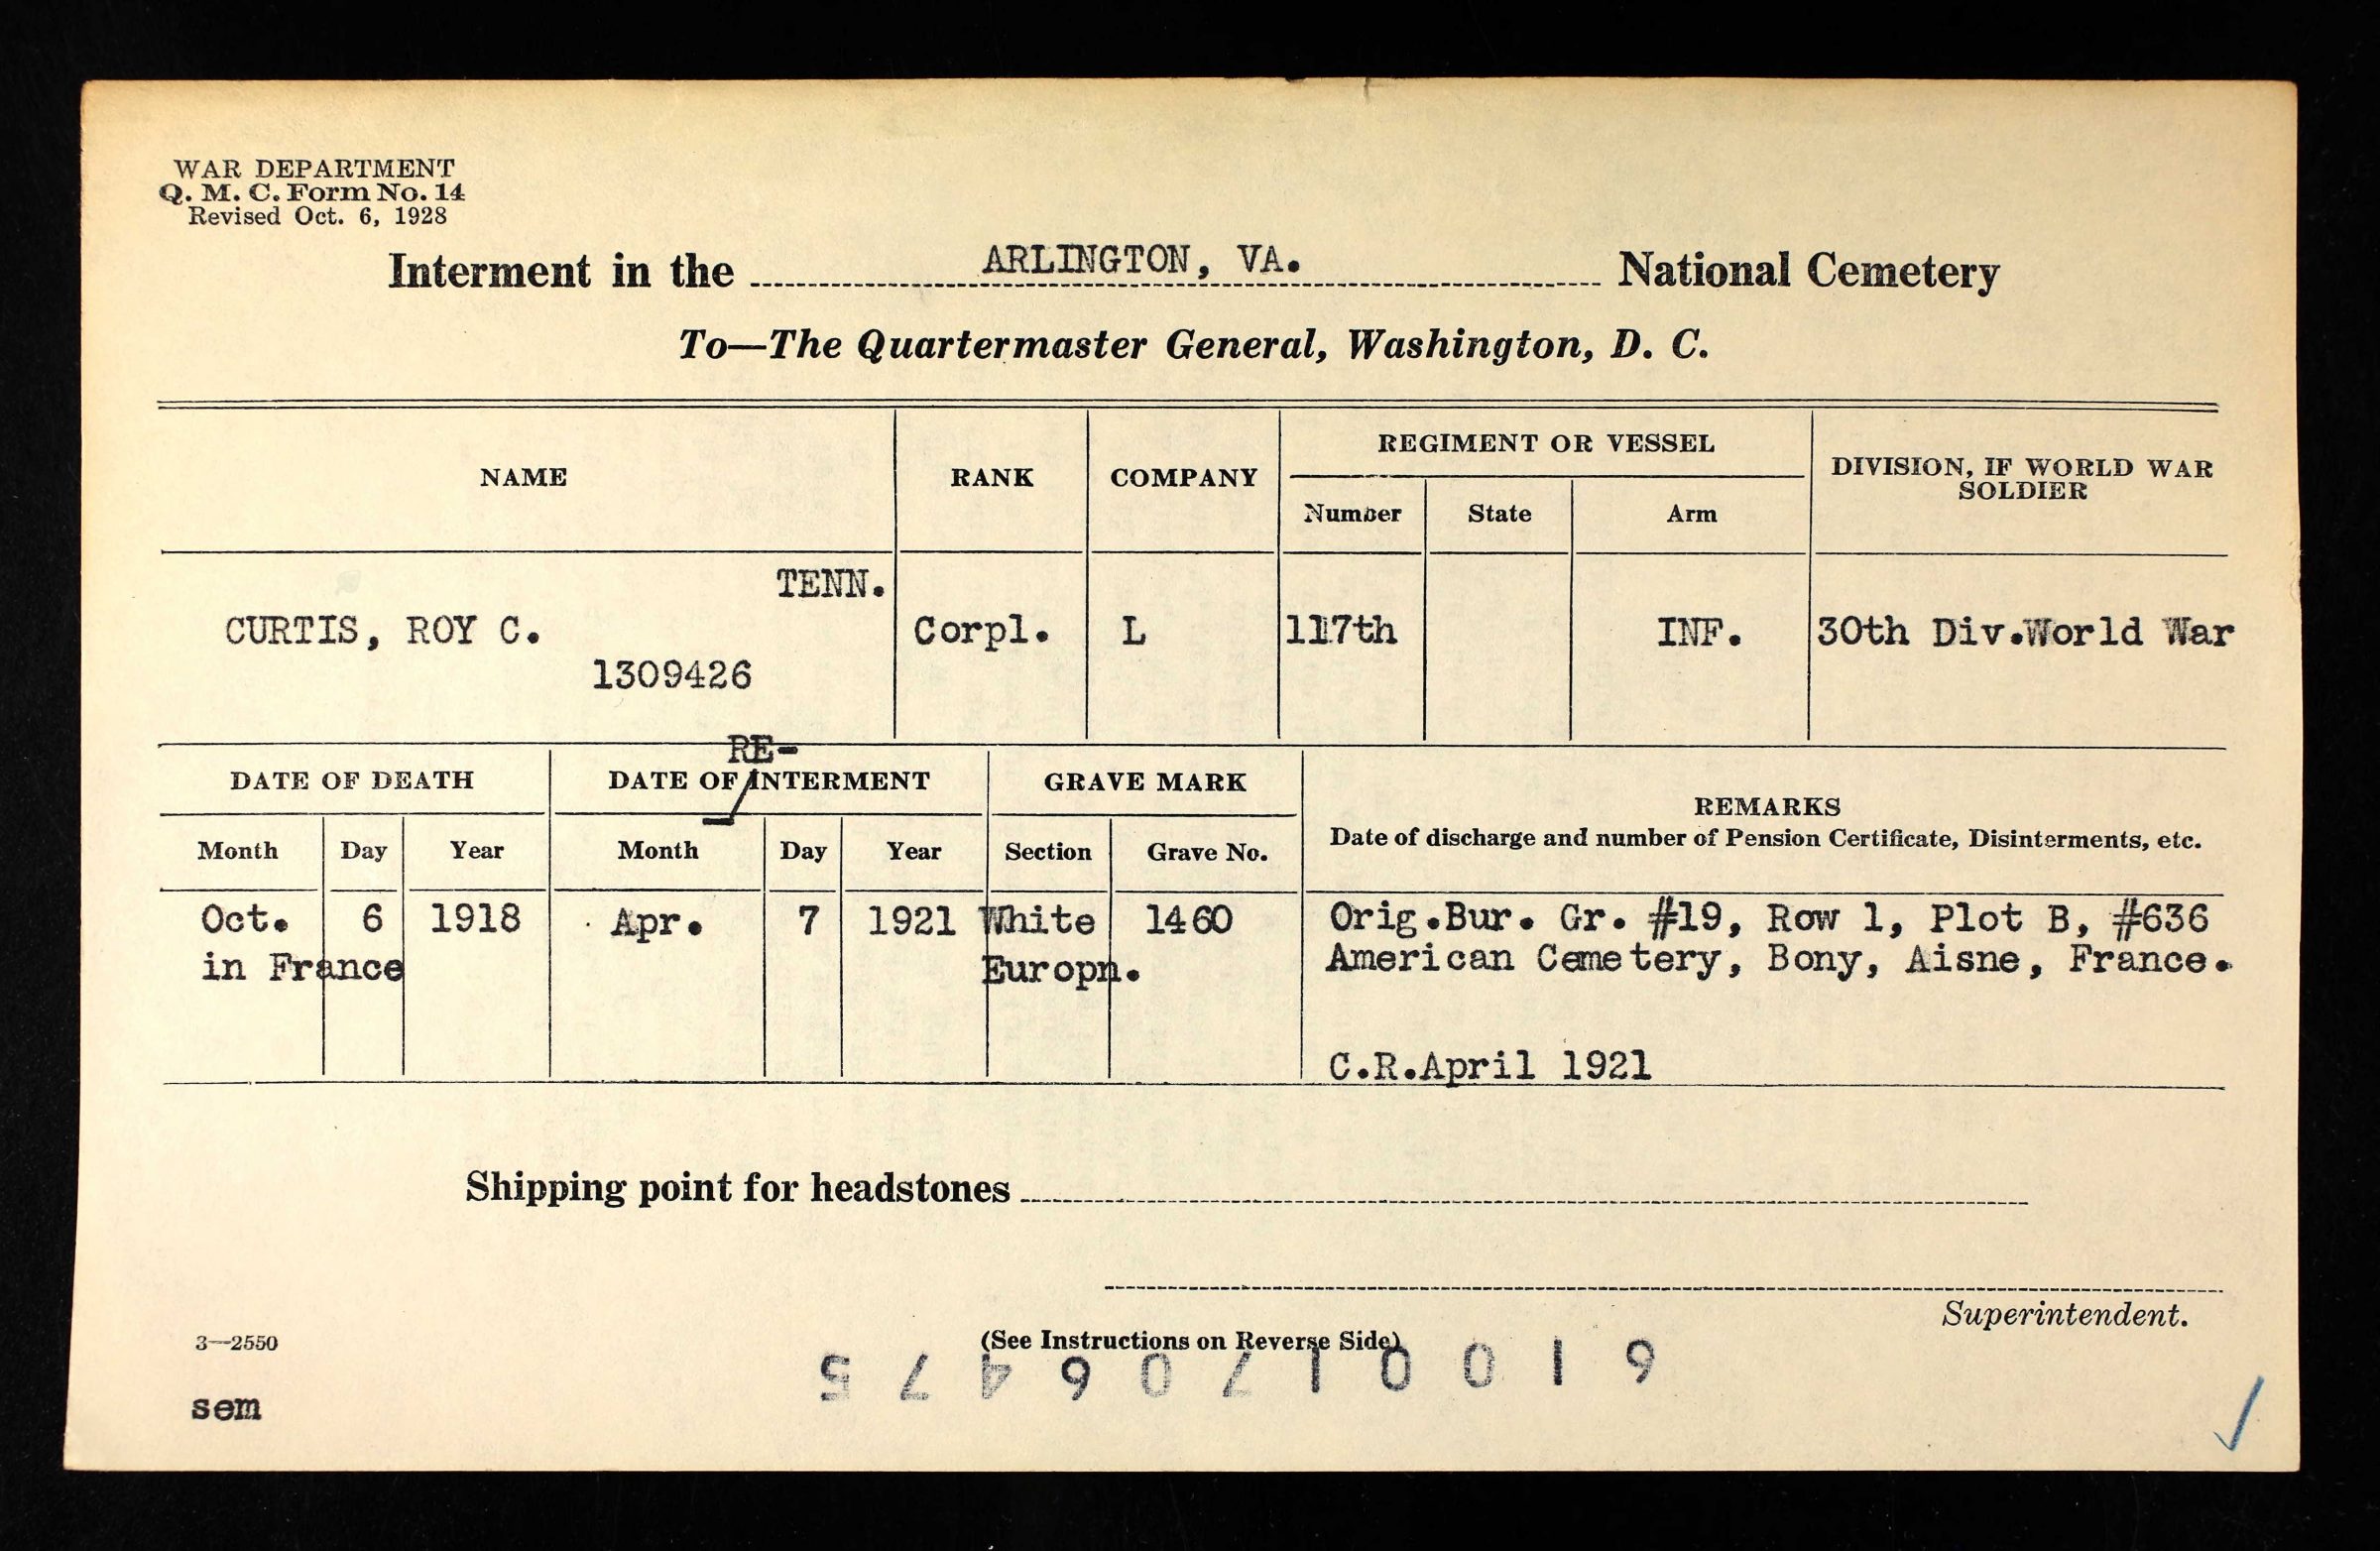 WAR DEPARTMENT
Q. M. C. Form No. 14
Revised Oct. 6, 1928
Interment in the ARLINGTON, VA. National Cemetery
To—The Quartermaster General, Washington, D. C.
NAME RANK COMPANY REGIMENT OR VESSEL DIVISION, IF WORLD WAR SOLDIER
Number State Arm
TENN.
CURTIS, ROY C. Corpl. L 117th INF. 30th Div.World War
1309426
RE-
DATE OF DEATH DATE OF INTERMENT GRAVE MARK REMARKS
Month Day Year Month Day Year Section Grave No. Date of discharge and number of Pension Certificate, Disinterments, etc.
Oct. 6 1918 Apr. 7 1921 White 1460 Orig.Bur. Gr. #19, Row 1, Plot B, #636
in France Europn. American Cemetery, Bony, Aisne, France.
C.R.April 1921
Shipping point for headstones
Superintendent.
3—2550 (See Instructions on Reverse Side)
sem